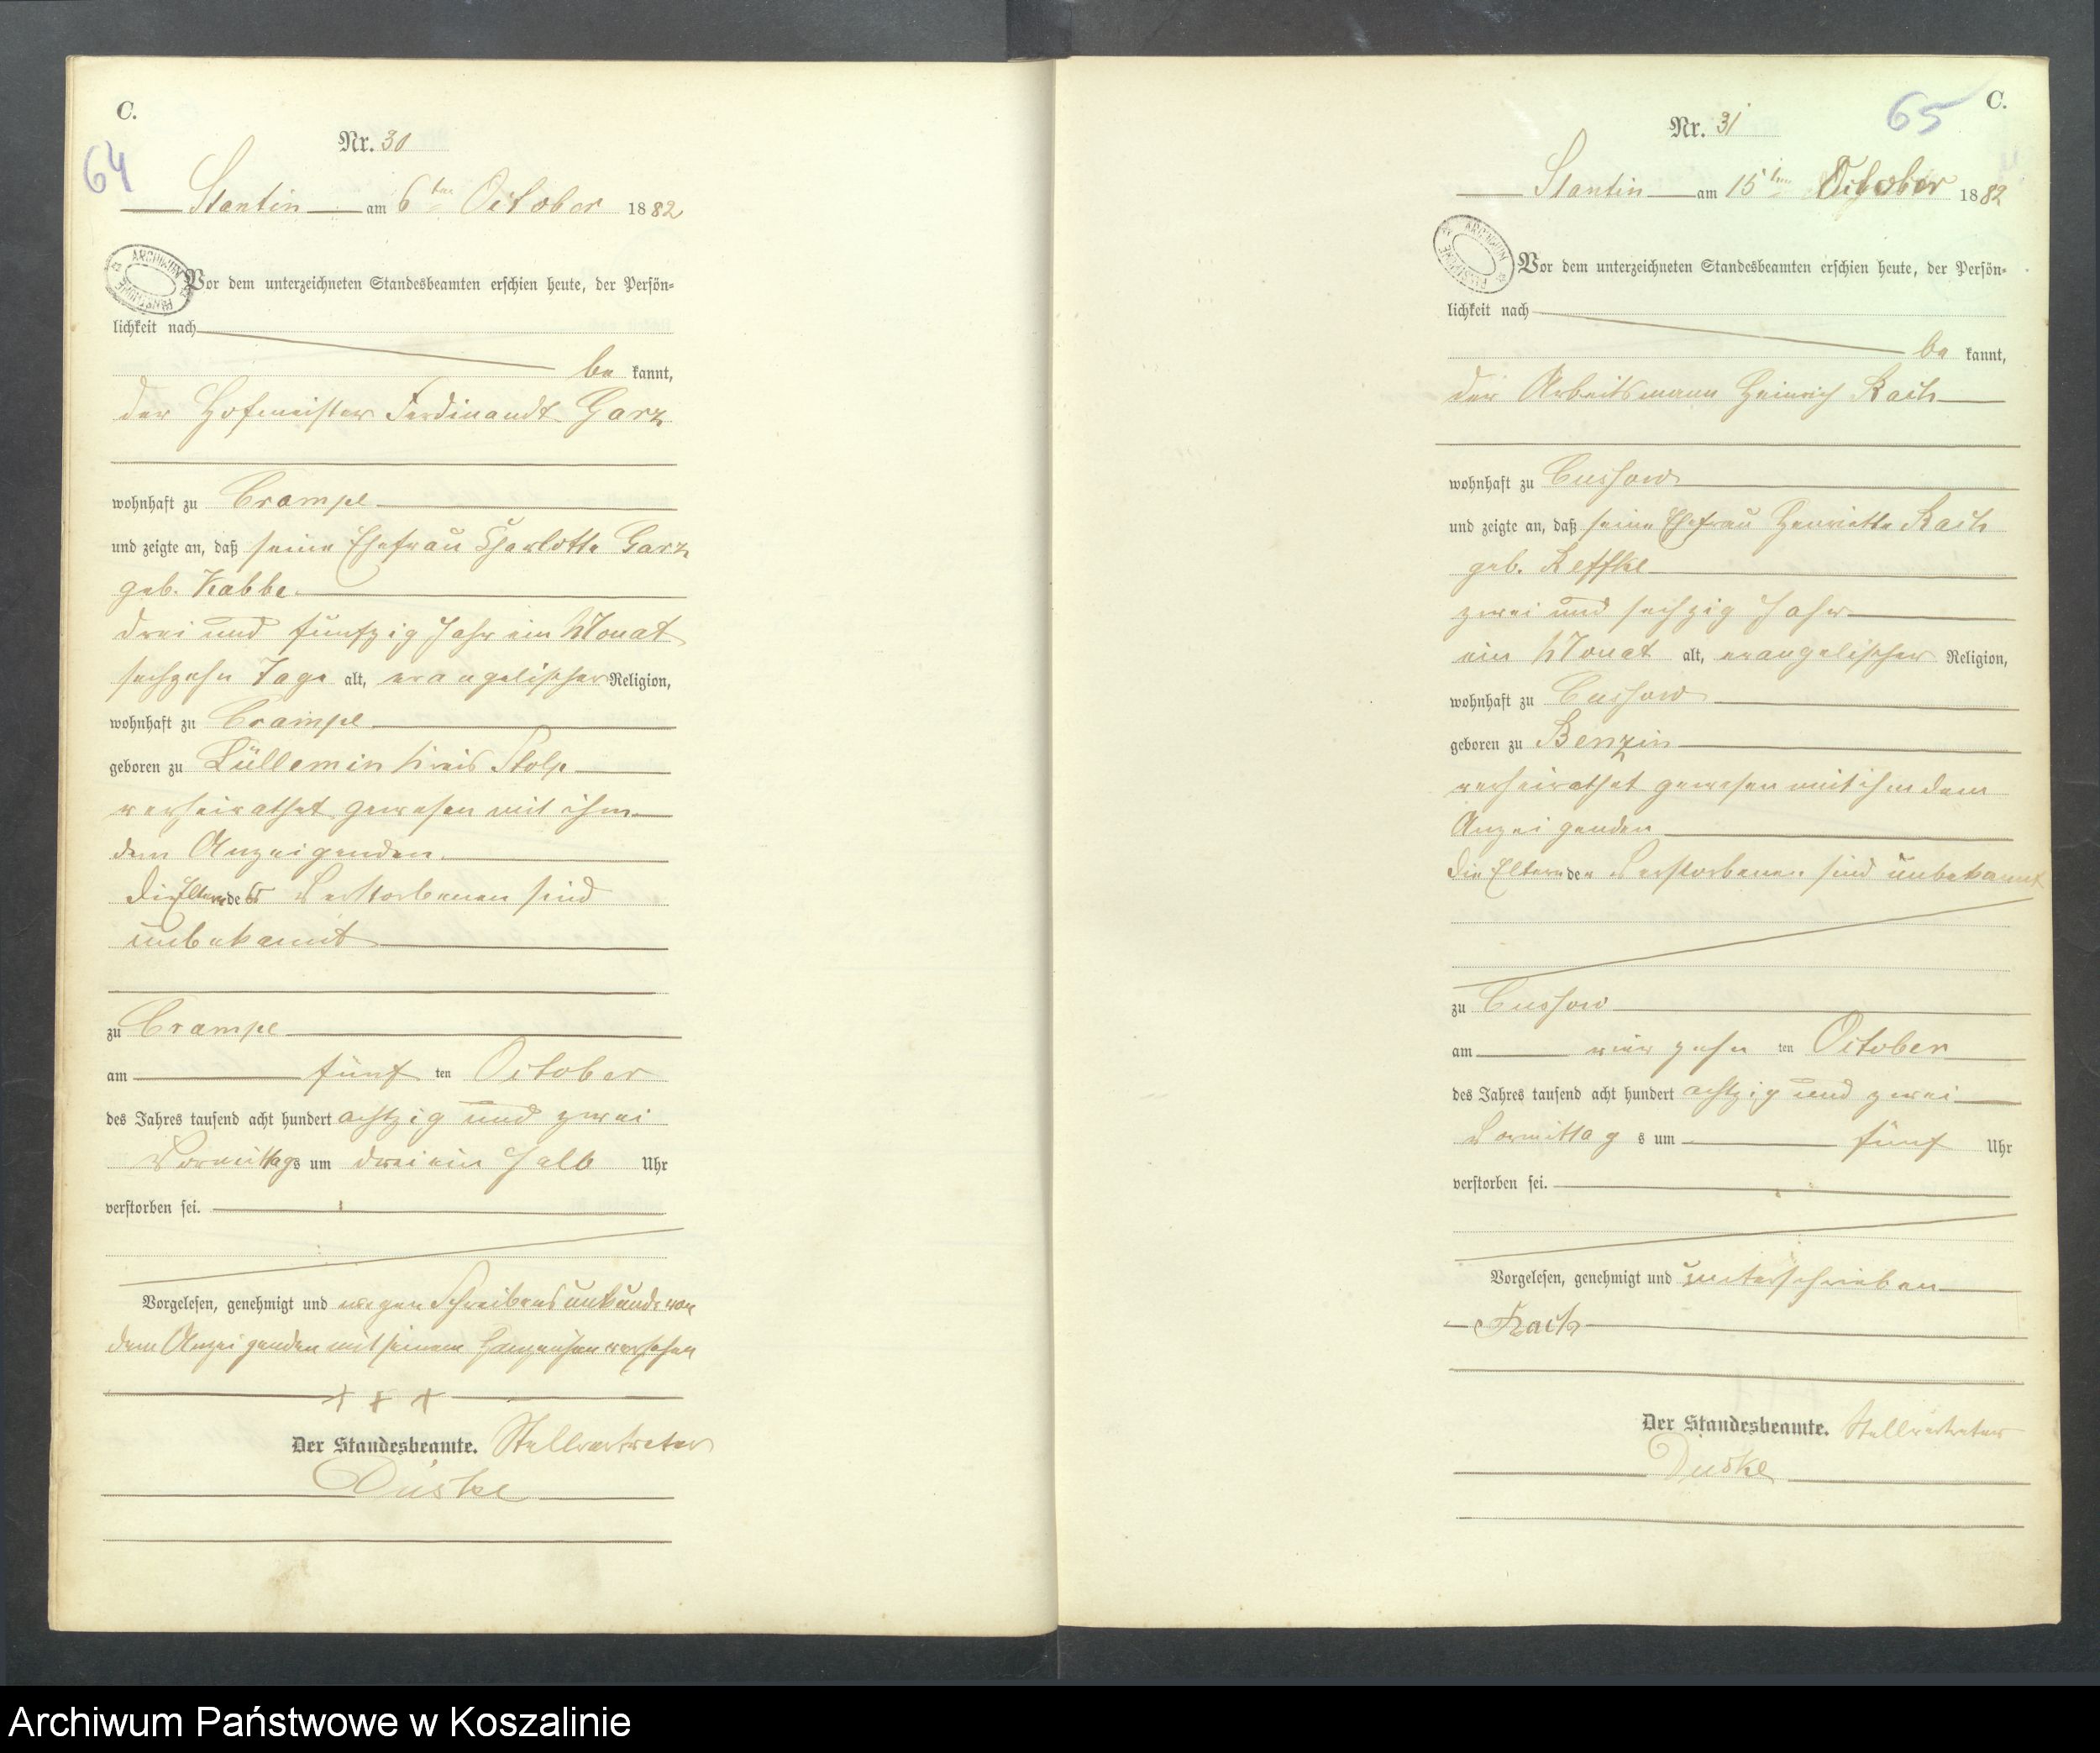 C.
64
Nr. 30
Stantin am 6ten October 1882
ARCHIWUM PAŃSTWOWE
Vor dem unterzeichneten Standesbeamten erschien heute, der Persön-
lichkeit nach
be kannt,
der Hofmeister Ferdinandt Garz
wohnhaft zu Crampe
und zeigte an, daß seine Ehefrau Charlotte Garz
geb. Kabbe
drei und fünfzig Jahr ein Monat
sechzehn Tage alt, evangelischer Religion,
wohnhaft zu Crampe
geboren zu Lüllemin Kreis Stolp
verheirathet gewesen mit ihm
dem Anzeigenden
die Eltern der Verstorbenen sind
unbekannt
zu Crampe
am fünf ten October
des Jahres tausend acht hundert achtzig und zwei
Vormittags um drei ein halb Uhr
verstorben sei.
Vorgelesen, genehmigt und wegen Schreibensunkunde von
dem Anzeigenden mit seinem Handzeichen versehen
+ + +
Der Standesbeamte. Stellvertreter
Duske
C.
65
Nr. 31
Stantin am 15ten October 1882
ARCHIWUM PAŃSTWOWE
Vor dem unterzeichneten Standesbeamten erschien heute, der Persön-
lichkeit nach
be kannt,
der Arbeitsmann Heinrich Rach
wohnhaft zu Cussow
und zeigte an, daß seine Ehefrau Henriette Rach
geb. Reffke
zwei und sechzig Jahr
ein Monat alt, evangelischer Religion,
wohnhaft zu Cussow
geboren zu Benzin
verheirathet gewesen mit ihm dem
Anzeigenden
die Eltern der Verstorbenen sind unbekannt
zu Cussow
am vier zehn ten October
des Jahres tausend acht hundert achtzig und zwei
Vormittag s um fünf Uhr
verstorben sei.
Vorgelesen, genehmigt und unterschrieben
Rach
Der Standesbeamte. Stellvertreter
Duske
Archiwum Państwowe w Koszalinie